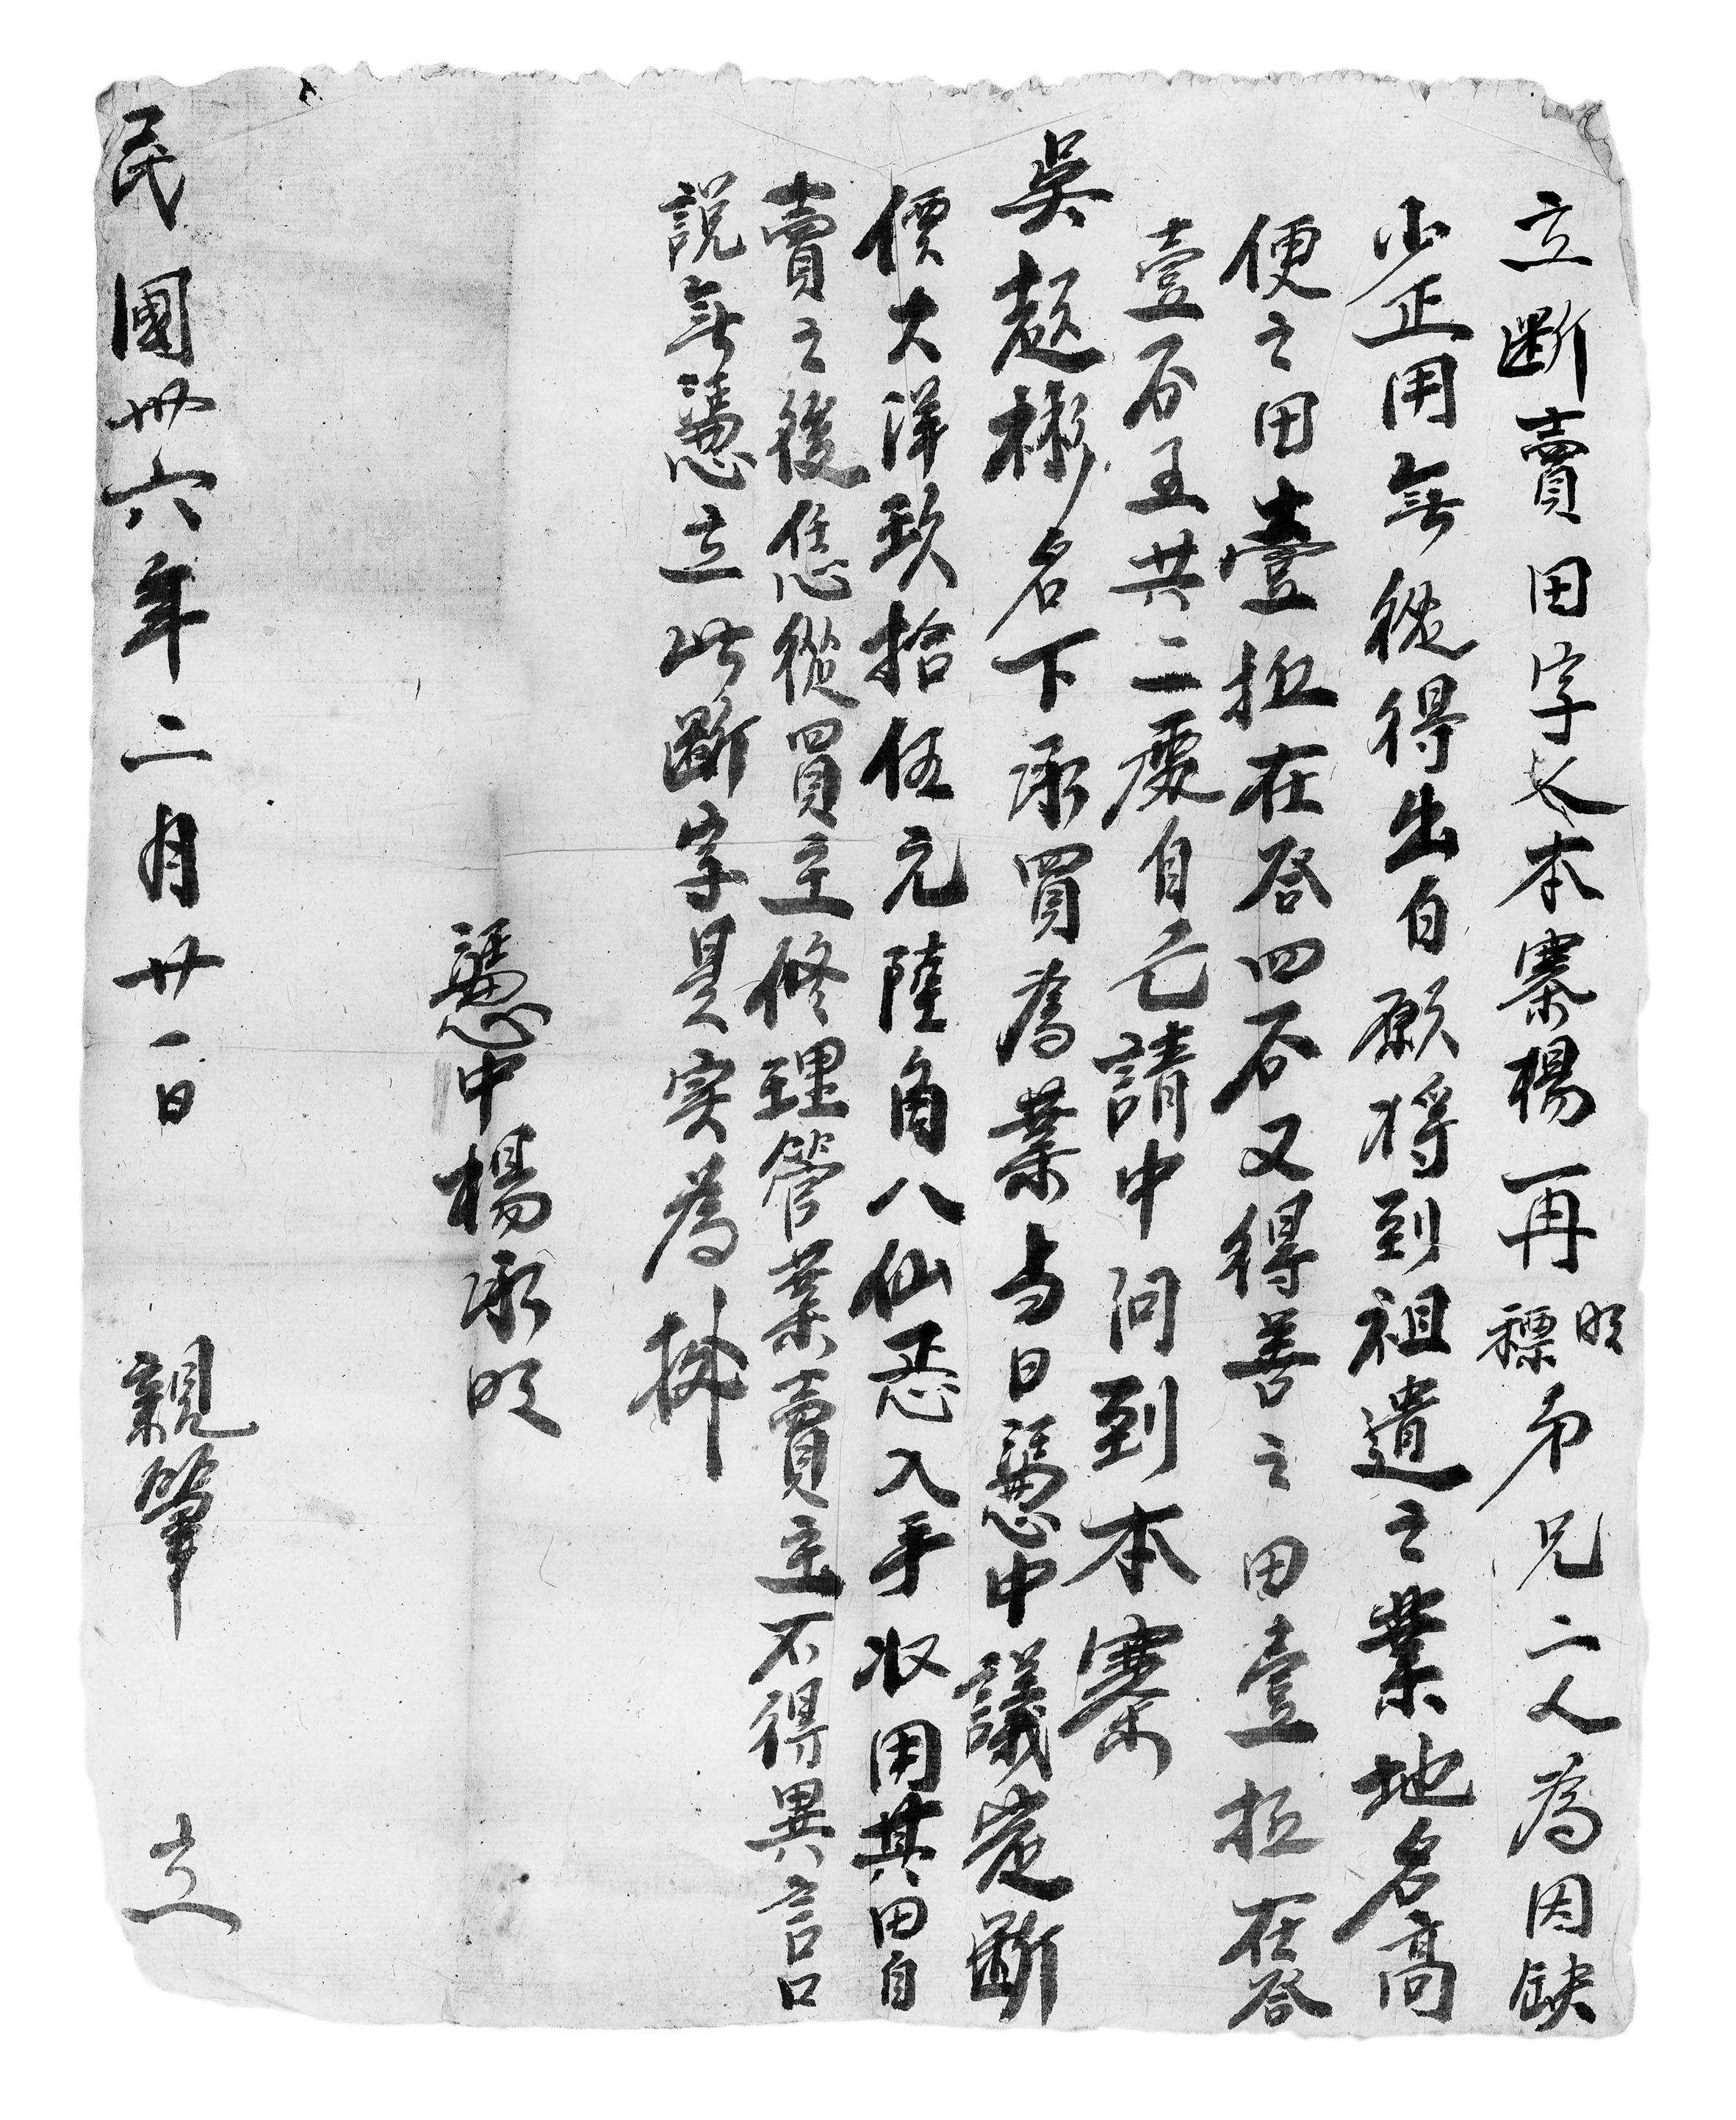 立斷賣田字人本寨楊再明標弟兄二人為因缺
少正用無從得出自願将到祖遺之業地名高
便之田壹坵在荅四石又得善之田壹坵在荅
壹石五共二處自己請中问到本寨
吳趂彬名下承買為業当日憑中議定斷
價大洋玖拾伍元陸角八仙恁入手收用其田自
賣之後恁從買主修理管業賣主不得異言口
說無憑立此斷字是实為拠
憑中楊承明
民國卅六年二月廿一日 親筆 立